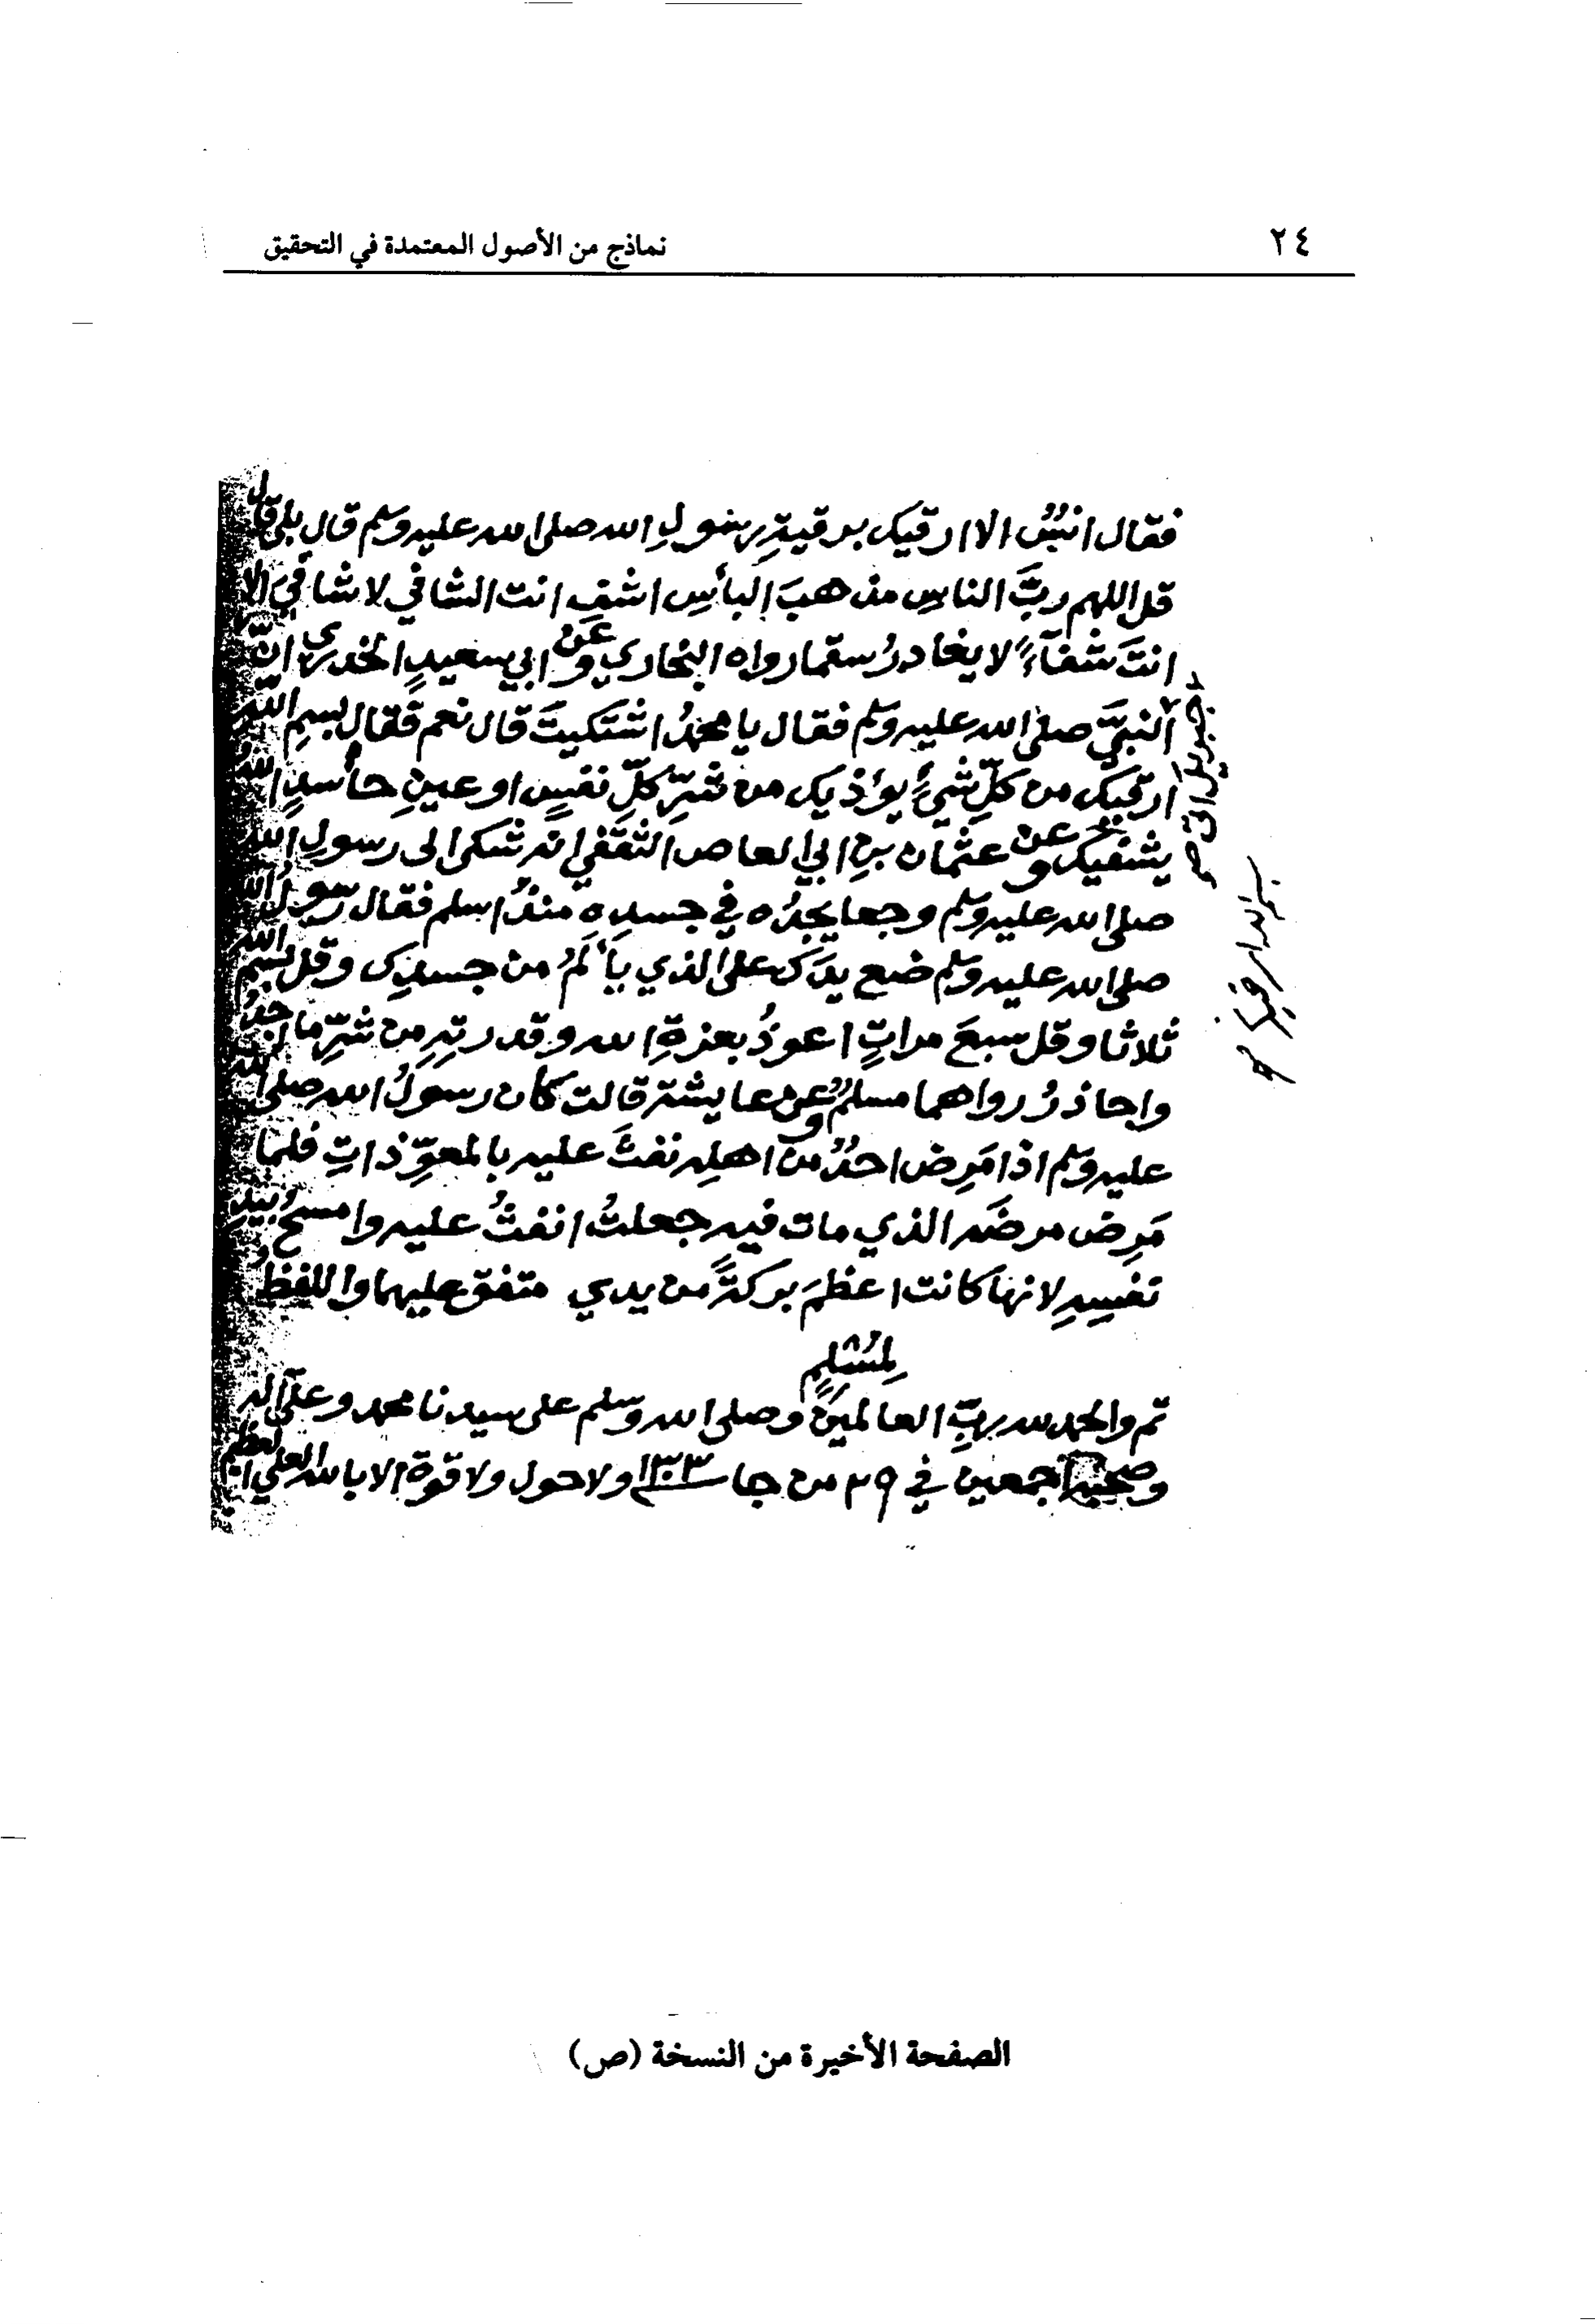 ٢٤
نماذج من الأصول المعتمدة في التحقيق
فقال انسٌ الا ارقيك برقيةِ رسولِ الله صلى الله عليه وسلم قال بلى قال
قل اللهم ربَّ الناسِ مذهبَ البأسِ اشفِ انت الشافي لا شافيَ الا
انتَ شفآءً لا يغادرُ سقما رواه البخاري وعن ابي سعيدٍ الخدري انّ
جبريل اتى صح
النبيَّ صلى الله عليه وسلم فقال يا محمدُ اشتكيتَ قال نعم فقال بسمِ الله
ارقيك من كلِّ شيءٍ يؤذيك من شرِّ كلِّ نفسٍ او عينِ حاسدٍ اللهُ
يشفيك وعن عثمان بنِ ابي العاص الثقفي انه شكا الى رسولِ الله
بسم الله ارقيك صح
صلى الله عليه وسلم وجعا يجدُه في جسدِهِ منذُ اسلم فقال رسولُ الله
صلى الله عليه وسلم ضع يدَك على الذي يألَمُ من جسدِك وقل بسم الله
ثلاثا وقل سبعَ مراتٍ اعوذُ بعزةِ الله وقدرتِهِ من شرِّ ما اجدُ
واحاذرُ رواهما مسلمٌ وعن عايشة قالت كان رسولُ الله صلى الله
عليه وسلم اذا مَرِض احدٌ من اهلِه نفثَ عليه بالمعوِّذاتِ فلما
مَرِض مرضَه الذي مات فيه جعلتُ انفثُ عليه وامسحُ بيدِ
نفسِهِ لانها كانت اعظمَ بركةً من يدي متفق عليهما واللفظُ
لِمُسْلِمٍ
تم والحمد لله ربِّ العالمين وصلى الله وسلم على سيدنا محمد وعلى آله
وصحبه اجمعين في ٢٩ من جا ١٣٠٣ ولا حول ولا قوة الا بالله العلي العظيم
الصفحة الأخيرة من النسخة (ص)